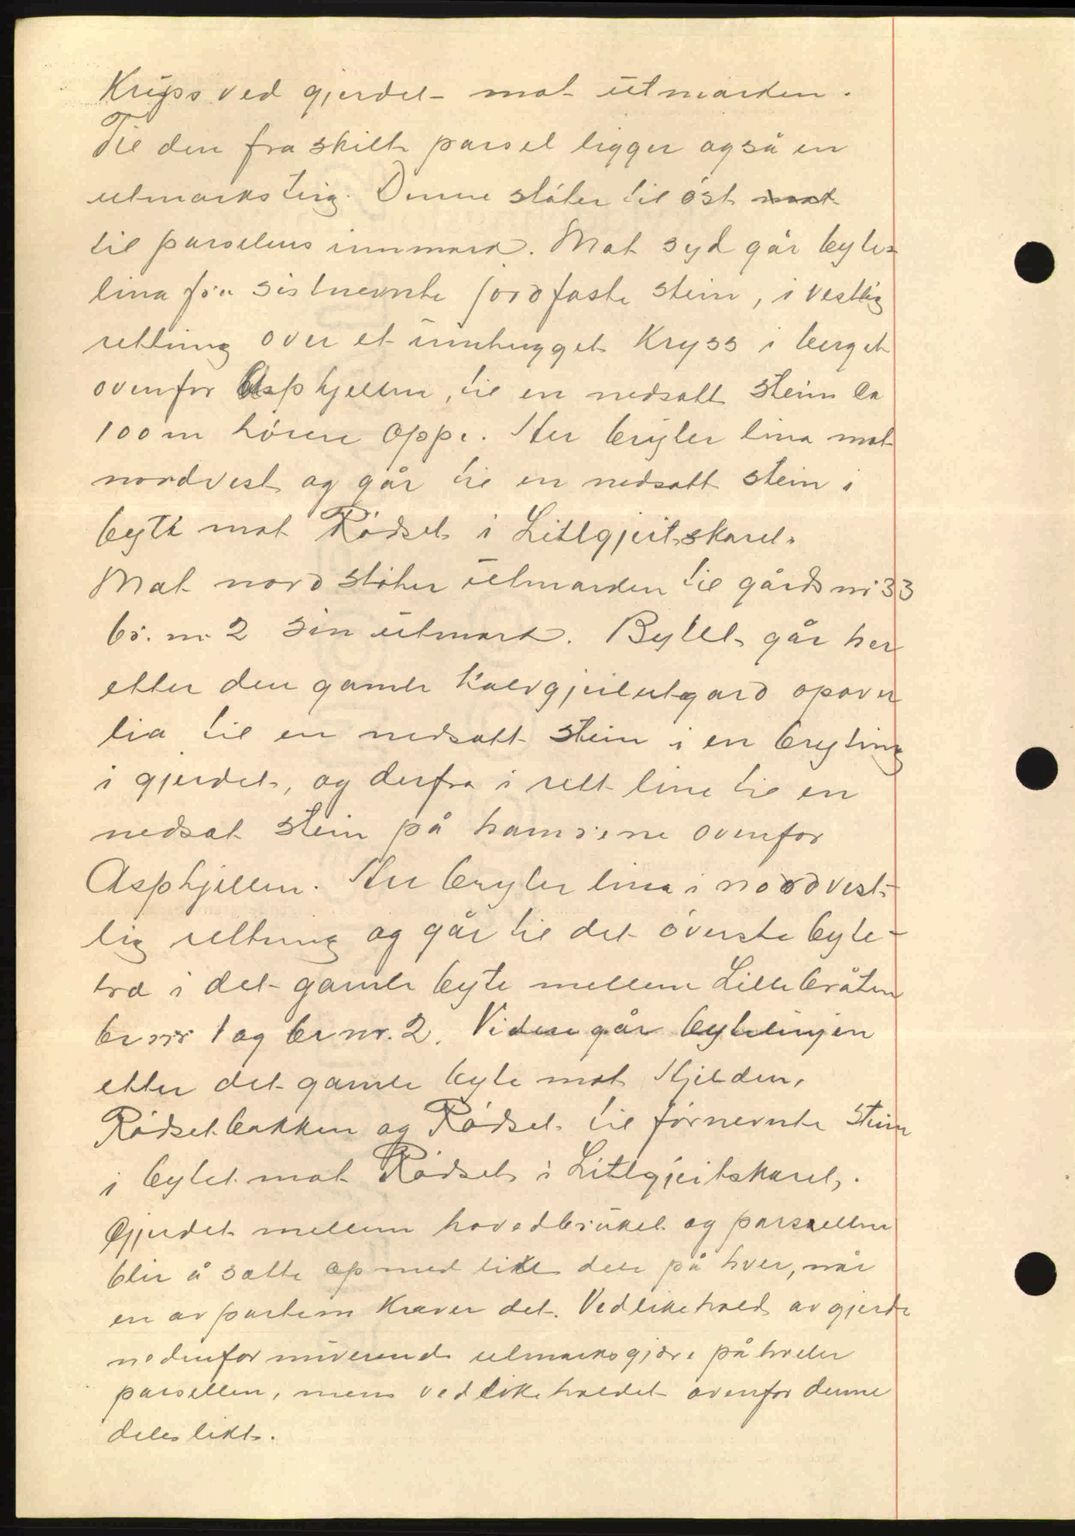 Kryss ved gjerdet mot utmarken.
Til den fraskilte parsel ligger også en
utmarksteig. Denne støter til øst
til parselens innmark. Mot syd går byte-
lina fra sistnevnte jordfaste stein, i vestlig
retning over et innhugget Kryss i berget
ovenfor Asphjellen, til en nedsatt stein ca
100 m høiere oppe. Her bryter lina mot
nordvest og går til en nedsatt stein i
byte mot Rødset i Litlgjeitskaret.
Mot nord støter utmarken til gårds nr 33
br. nr. 2 sin utmark. Bytet går her
etter den gamle opover
lia til en nedsatt stein i en bryting
i gjerdet, og derfra i rett line til en
nedsat stein på hamrene ovenfor
Asphjellen. Her bryter lina i nordvest-
lig retning og går til det øverste byte-
tre i det gamle byte mellem Lillebråten
br nr 1 og br nr. 2. Videre går bytelinjen
etter det gamle byte mot Kjelden,
Rødsetbakken og Rødset til førnevnte stein
i bytet mot Rødset i Litlgjeitskaret.
Gjerdet mellem hovedbruket og parsellen
blir å sette op med like dele på hver, når
en av partene Krever det. Vedlikehold av gjerde
nedenfor nuverende utmarksgjære påhviler
parsellen, mens vedlikeholdet ovenfor denne
deles likt.